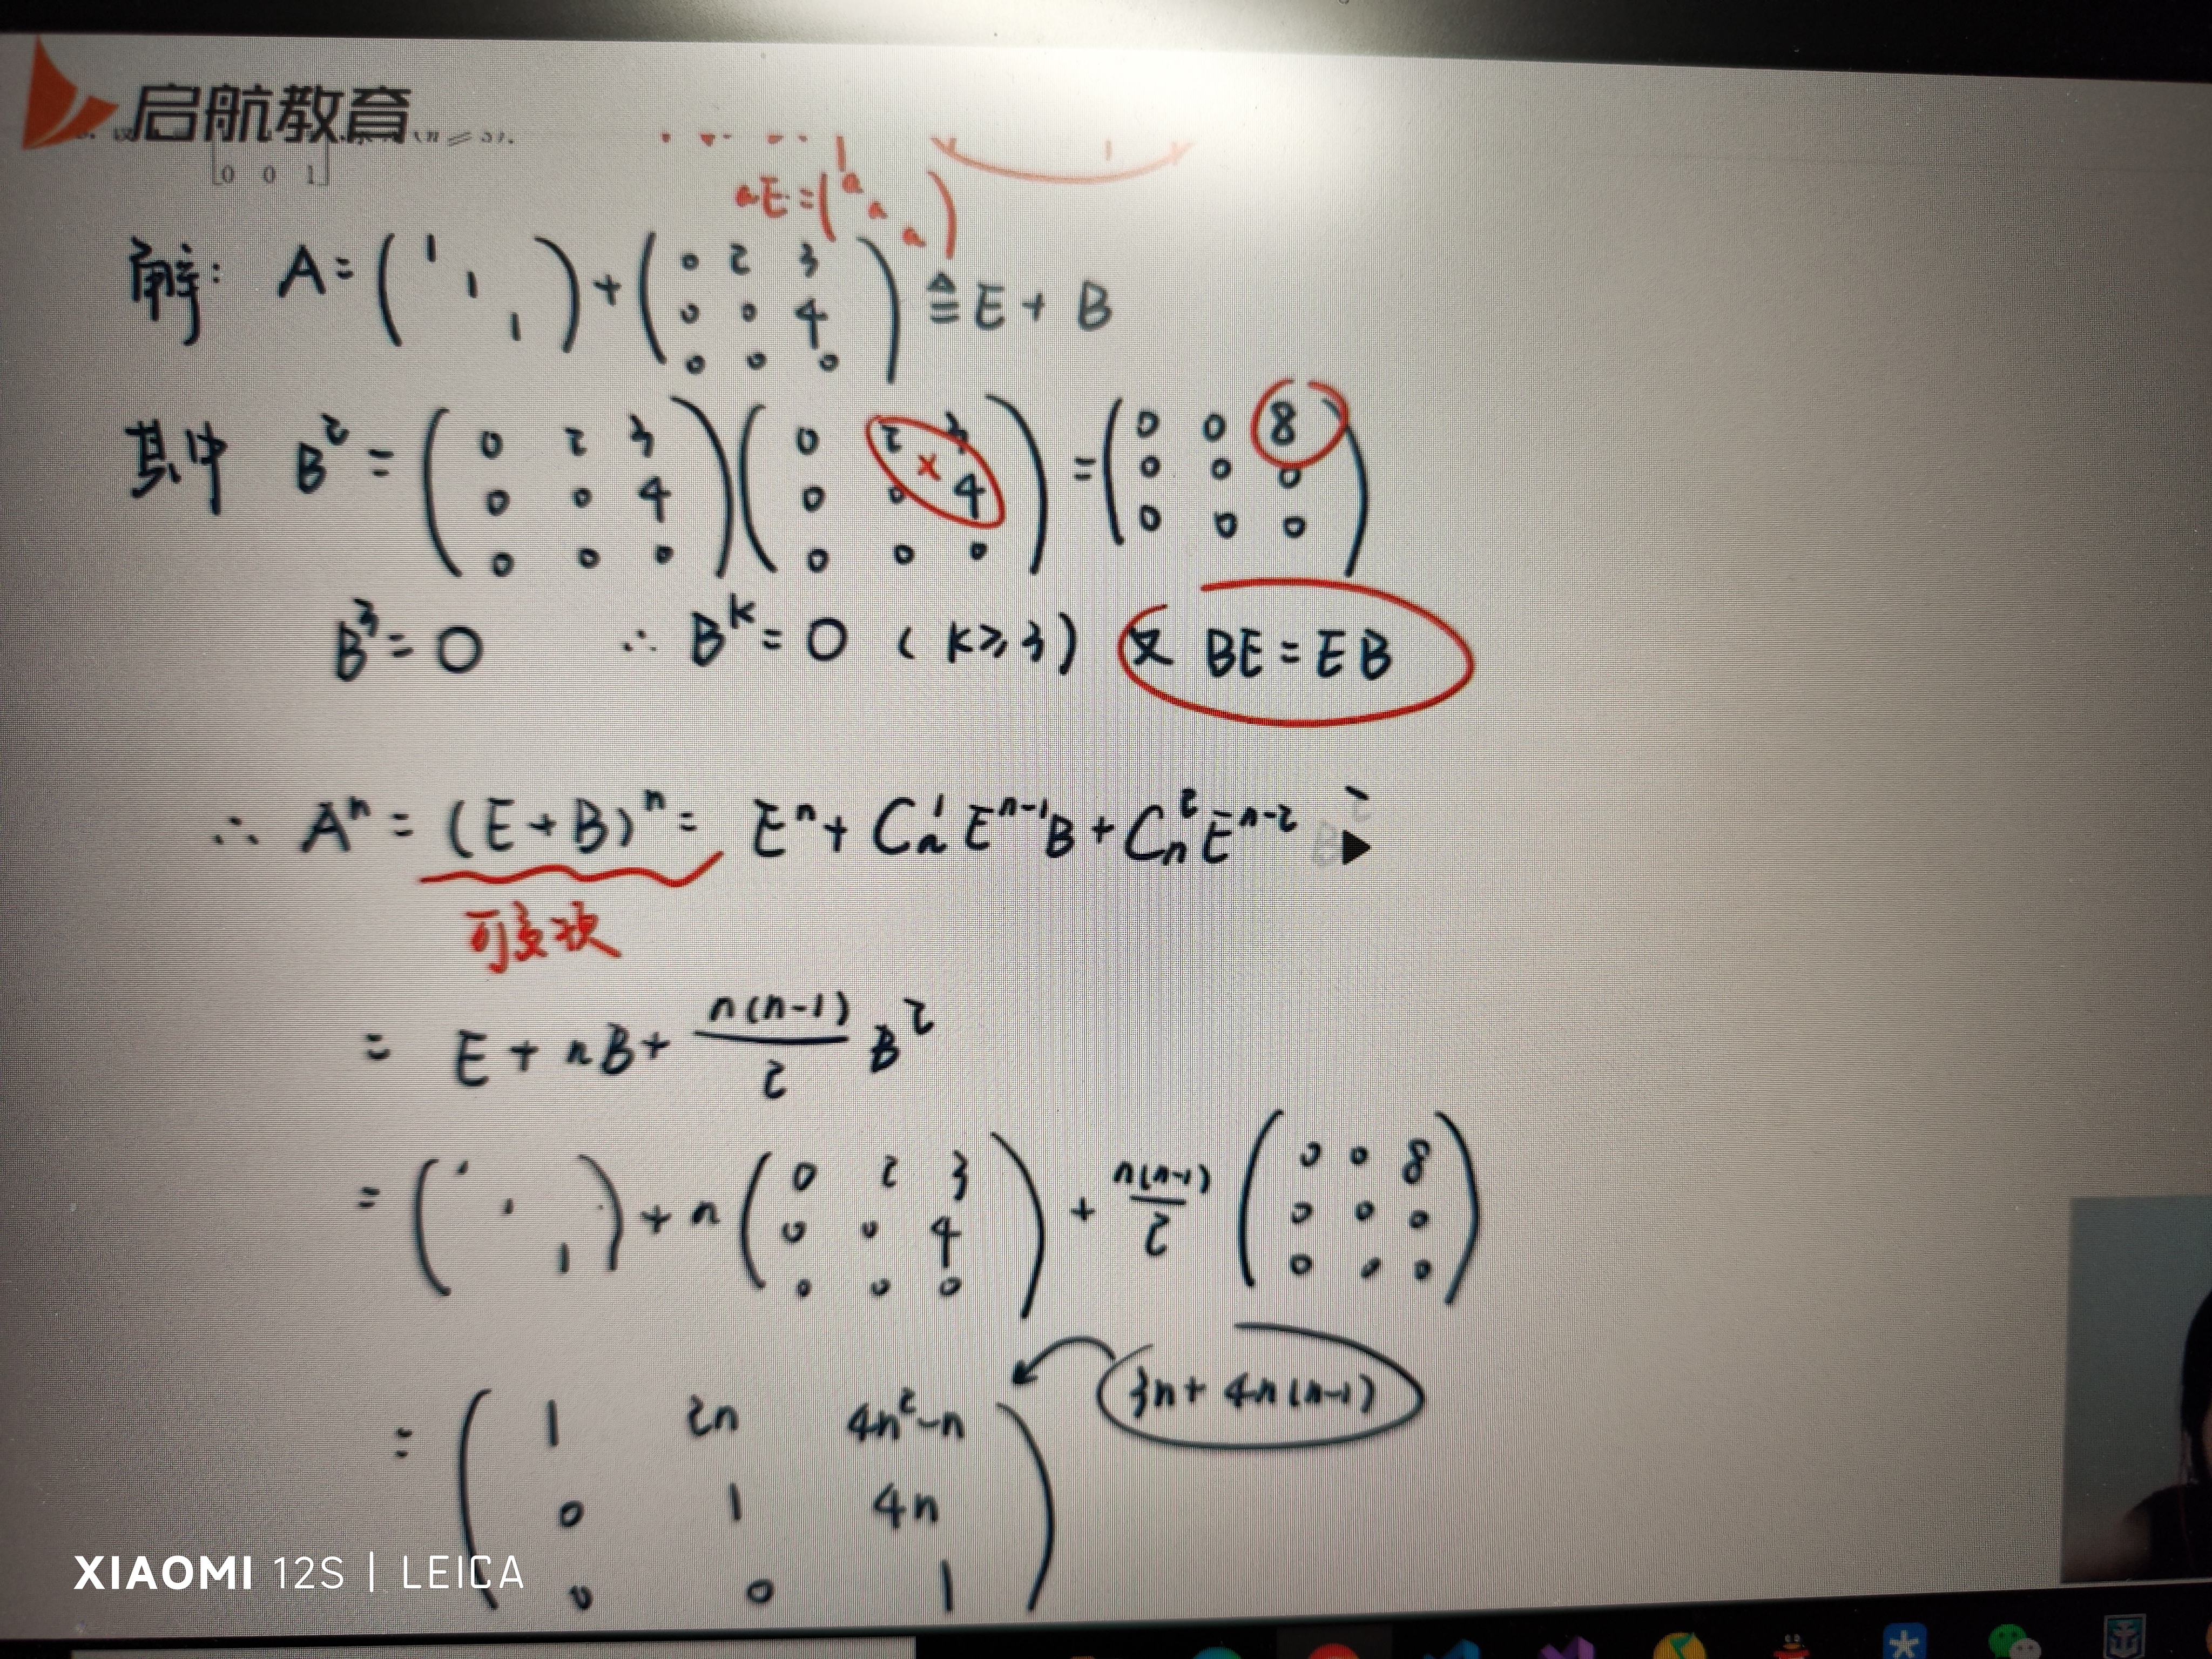 启航教育
(n≥3).
0 0 1
aE=(a a a)
解: A=(1 1 1)+(0 2 3 0 0 4 0 0 0)≜E+B
其中 B²=(0 2 3 0 0 4 0 0 0)(0 2 3 0 0 4 0 0 0)=(0 0 8 0 0 0 0 0 0)
×
B³=O ∴ Bᵏ=O (k≥3) 又 BE=EB
∴ Aⁿ=(E+B)ⁿ= Eⁿ+Cₙ¹Eⁿ⁻¹B+Cₙ²Eⁿ⁻² B²
= E+nB+n(n-1)/2 B²
=(1 1 1)+n(0 2 3 0 0 4 0 0 0)+n(n-1)/2(0 0 8 0 0 0 0 0 0)
3n+4n(n-1)
=(1 2n 4n²-n
0 1 4n
0 0 1)
XIAOMI 12S | LEICA